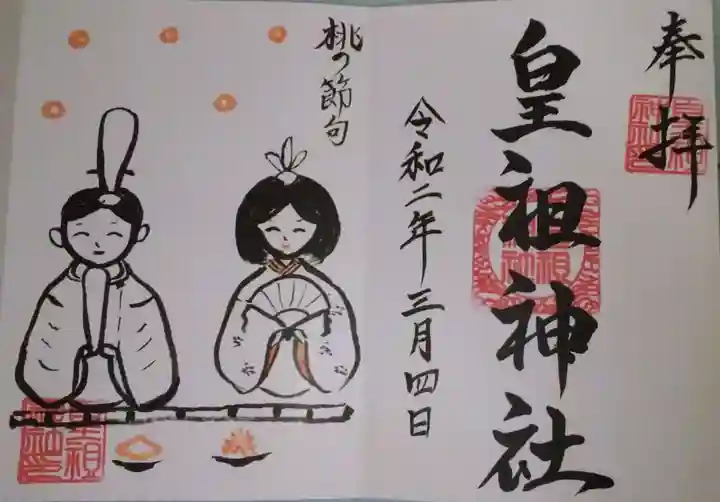 奉拝
皇祖神社
令和二年三月四日
桃の節句